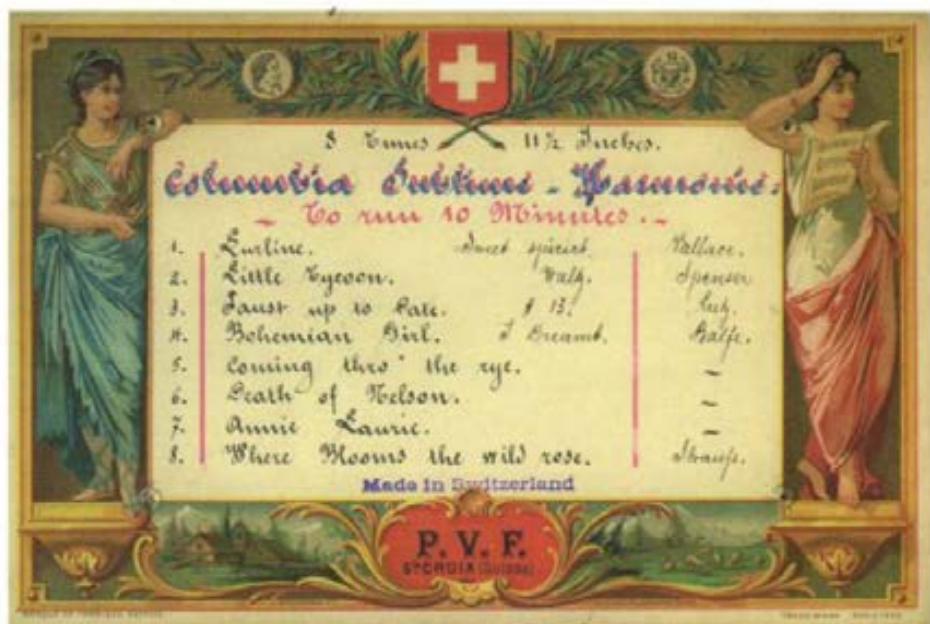 8 Tunes 11½ Inches.
Columbia Sublime - Harmonie.
- To run 10 Minutes. -
1. Lurline. Sweet spirit. Wallace.
2. Little Tycoon. Waltz. Spenser
3. Faust up to Date. Lutz.
4. Bohemian Girl. I Dreamt. Balfe.
5. Coming thro' the rye. ~
6. Death of Nelson. ~
7. Annie Laurie. ~
8. Where Blooms the wild rose. Strauss.
Made in Switzerland
P. V. F.
Ste CROIX (Suisse)